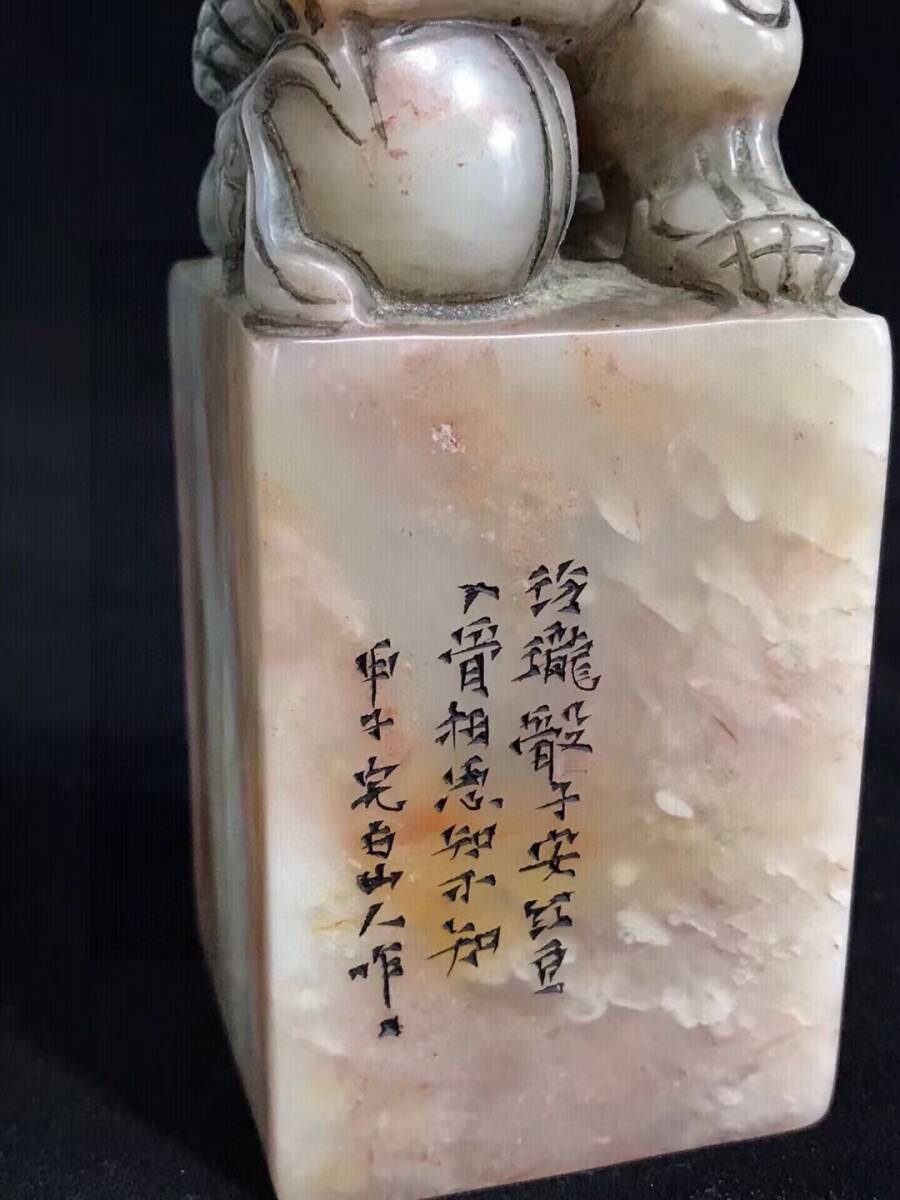 玲瓏骰子安紅豆
入骨相思知不知
甲子完白山人作